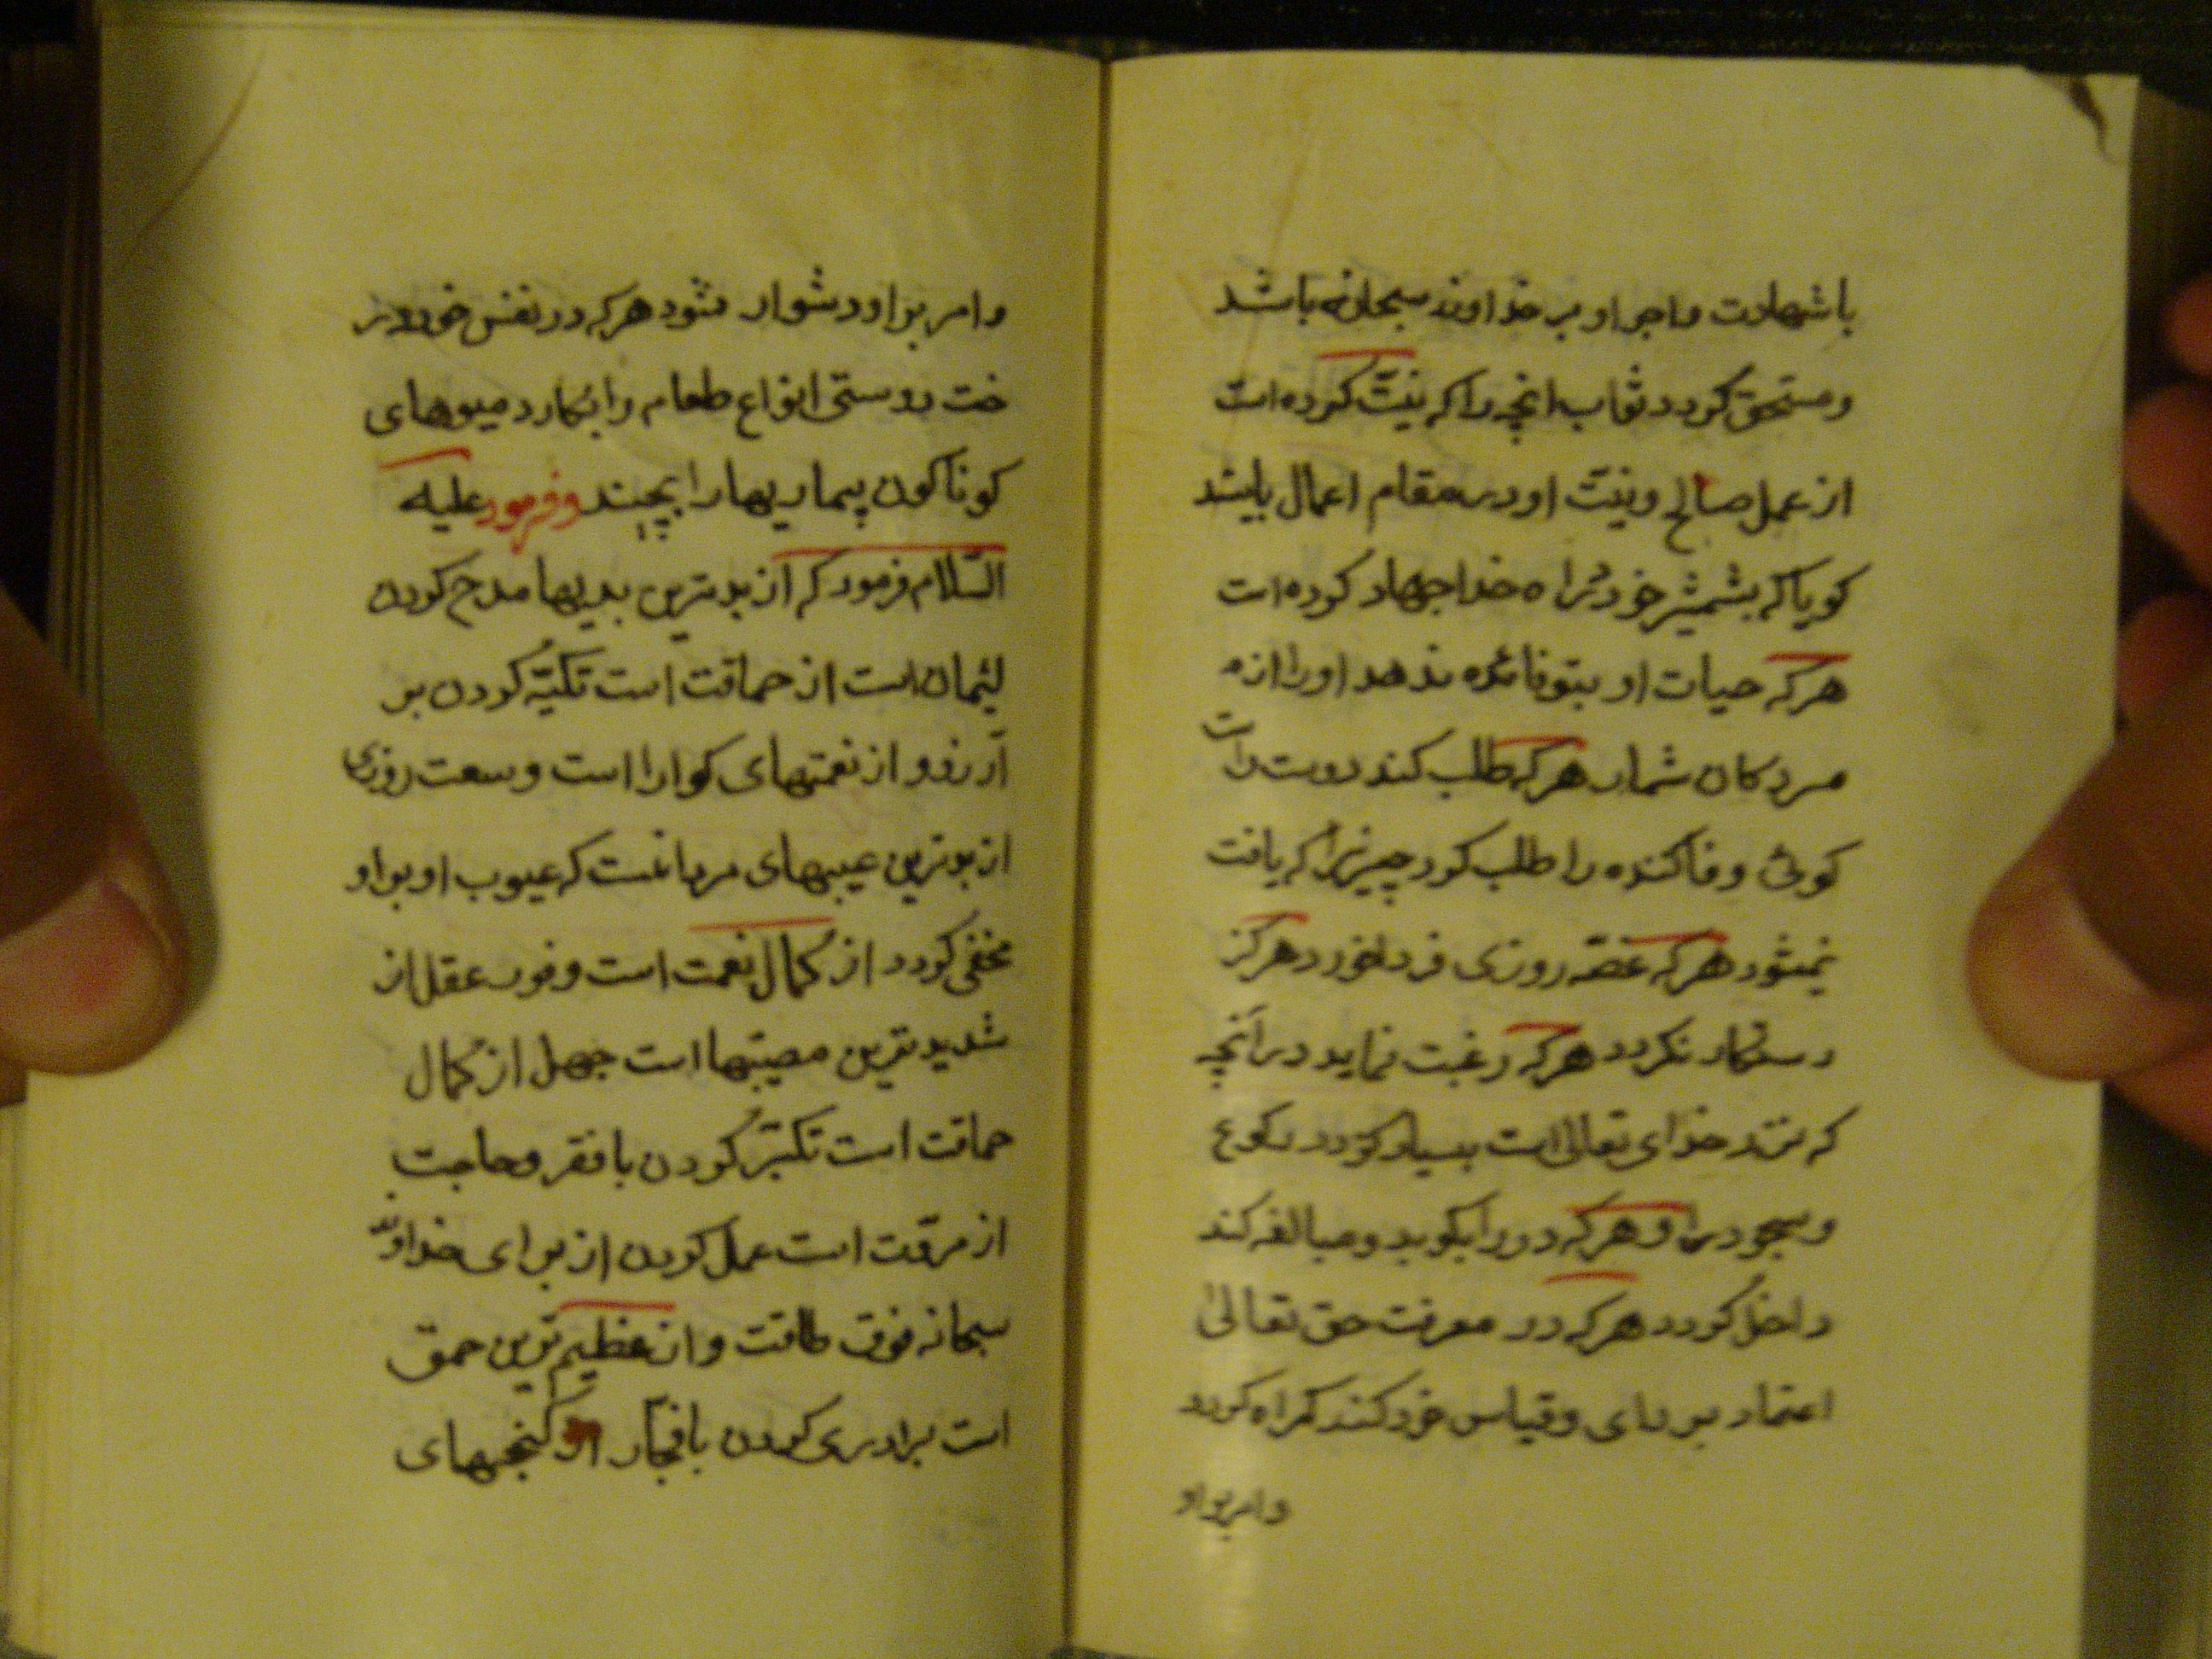 باشهادت واجر او بر خداوند سبحانه باشد
ومستحق کردد ثواب انچه را که نیّت کرده است
از عمل صالح ونیّت او در مقام اعمال باشد
کویا که بشمشیر خود در راه خدا جهاد کرده است
هرکه حیات او بتو فائده ندهد او را از
مردکان شمار هرکه طلب کند دوست راست
کوئی وفا کننده را طلب کرد چیزیرا که یافت
نمیشود هرکه غصّه روزی فردا خورد هرکز
رستکار نکردد هرکه رغبت نماید در آنچه
که نزد خدای تعالی است بسیار کردد رکوع
وسجود او هرکه در را بکوبد ومبالغه کند
داخل کردد هرکه در معرفت حق تعالی
اعتماد بر رای وقیاس خود کند کمراه کردد
وامر بر او
وامر بر او دشوار شود هرکه در نفس خود در
خت دوستی انواع طعام را بکارد میوهای
کوناکون بیماریها را بچیند وفرمود علیه
السّلام فرمود که از بدترین بدیها مدح کردن
لئیمان است از حماقت است تکیّه کردن بر
آرزو و از نعمتهای کوارا است وسعت روزی
از بدترین عیبهای مرد انست که عیوب او بر او
مخفی کردد از کمال نعمت است وفور عقل از
شدیدترین مصیبتها است جهل از کمال
حماقت است تکبّر کردن با فقر وحاجت
از مروّت است عمل کردن از برای خداوند
سبحانه فوق طاقت واز عظیم ترین حمق
است برادری کردن با فجّار از کنجهای